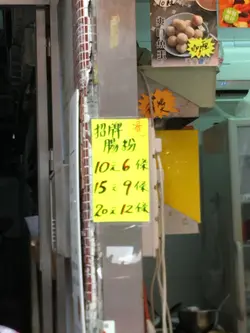 招牌
腸粉
10元6條
15元9條
20元12條